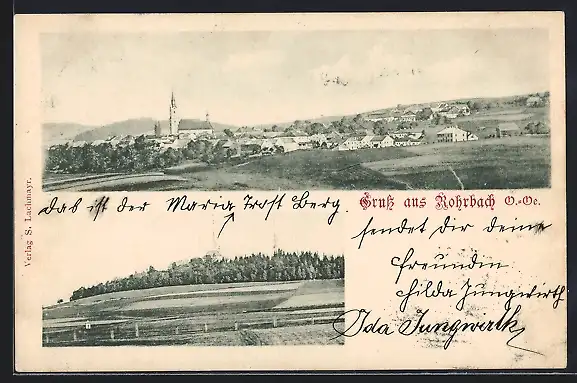 Gruß aus Rohrbach O.-Oe.
das ist der Maria Trost Berg.
sendet dir deine
Freundin
Hilda Jungwirth
Ida Jungwirth
Verlag S. Lachmayr.